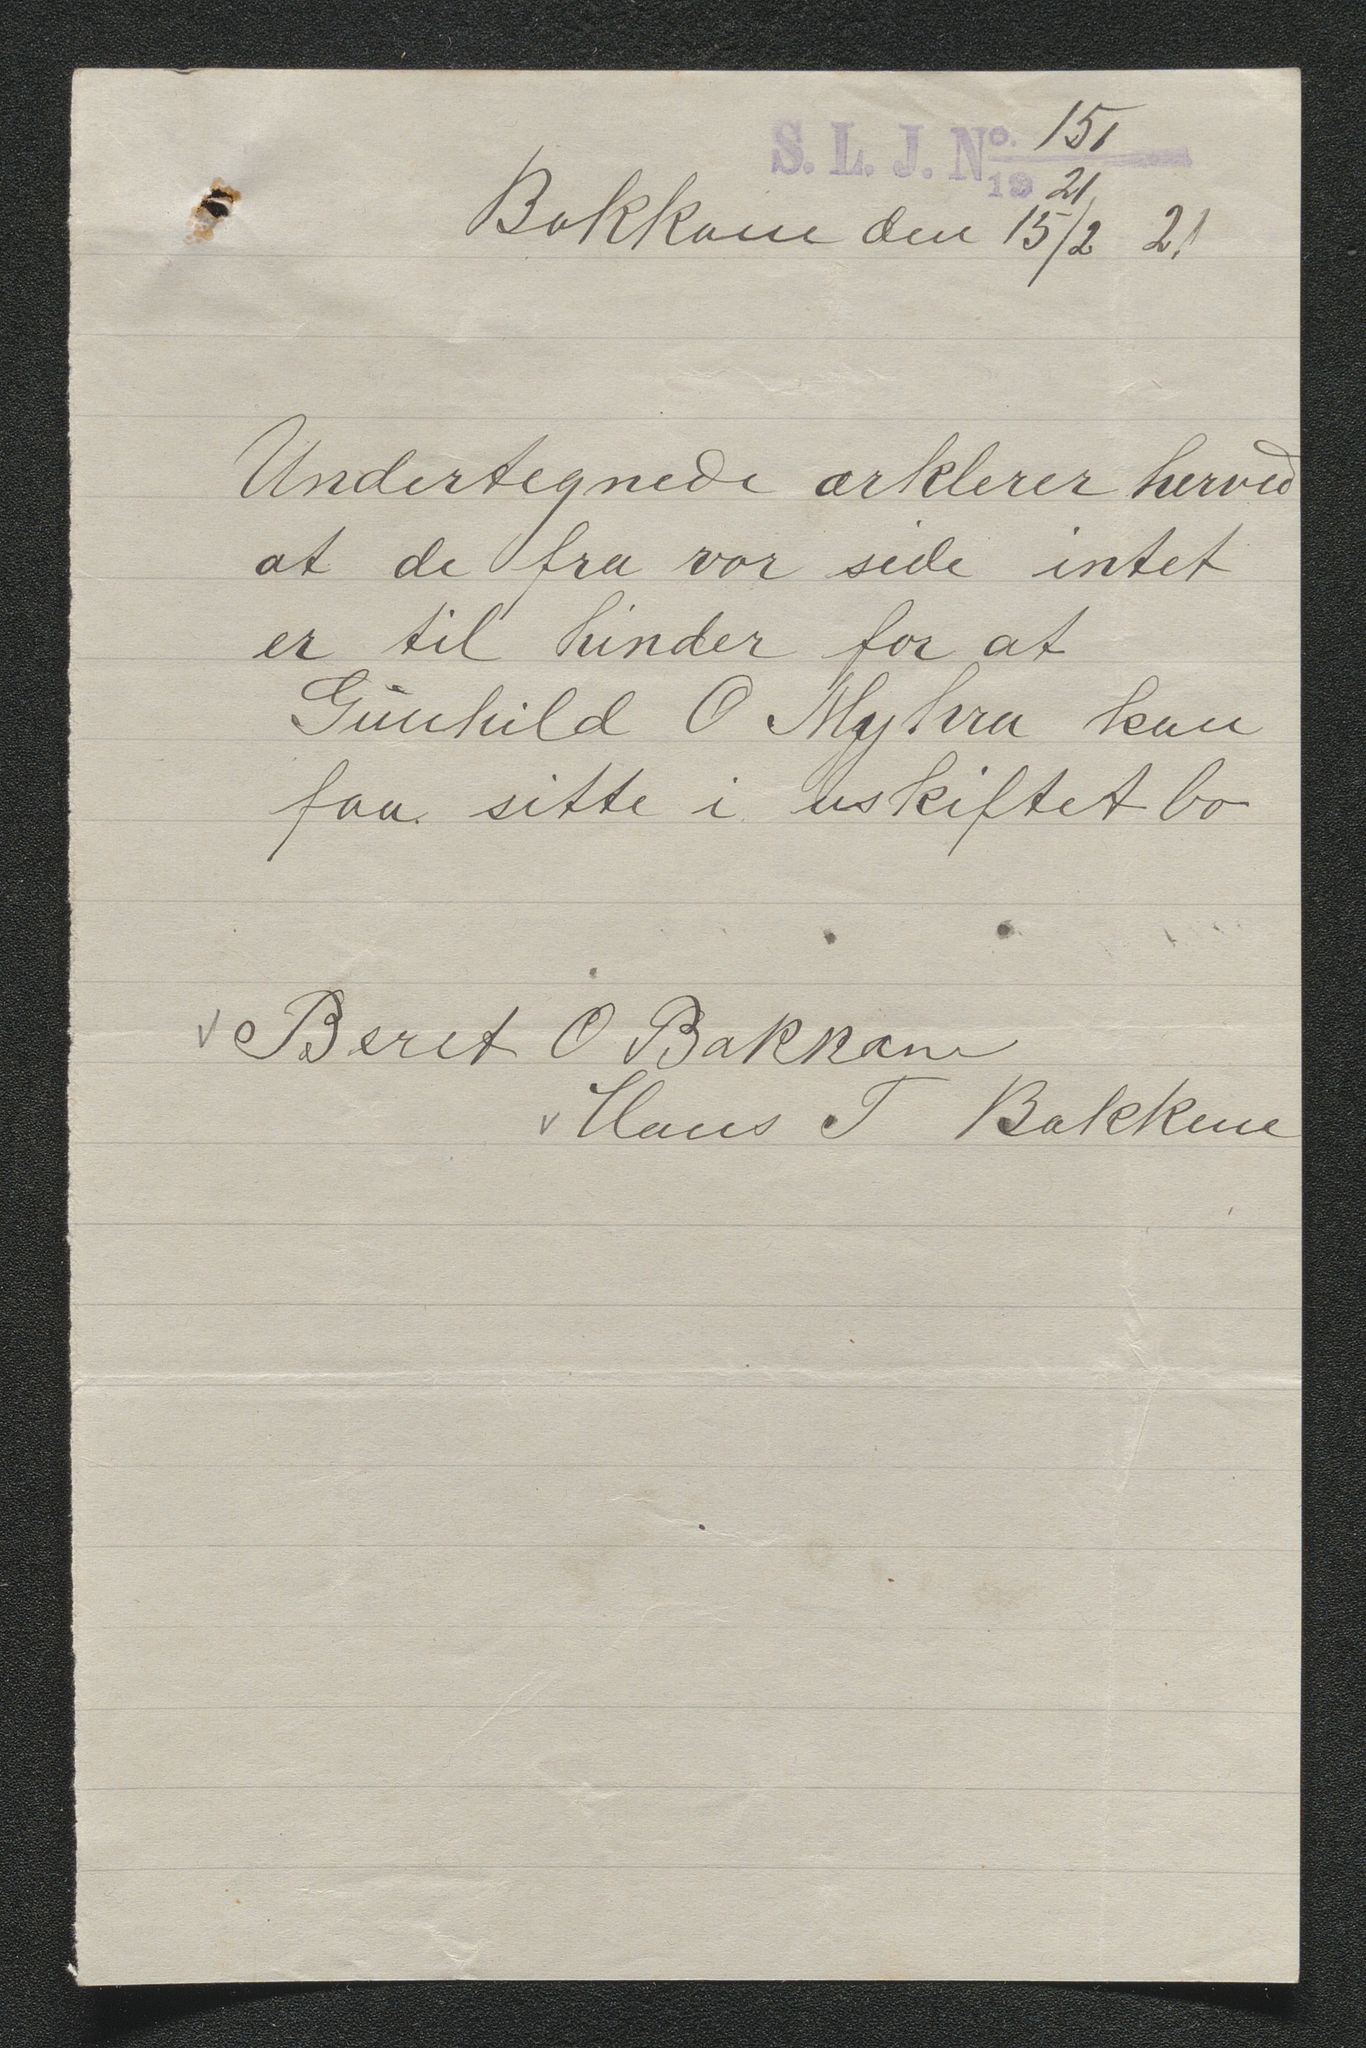 S. L. J. No. 151
19 21
Bakkane den 15/2 21
Undertegnede ærklerer herved
at de fra vor side intet
er til hinder for at
Gunhild O Myhra kan
faa sitte i uskiftet bo
Beret O Bakkane
Hans T Bakkene